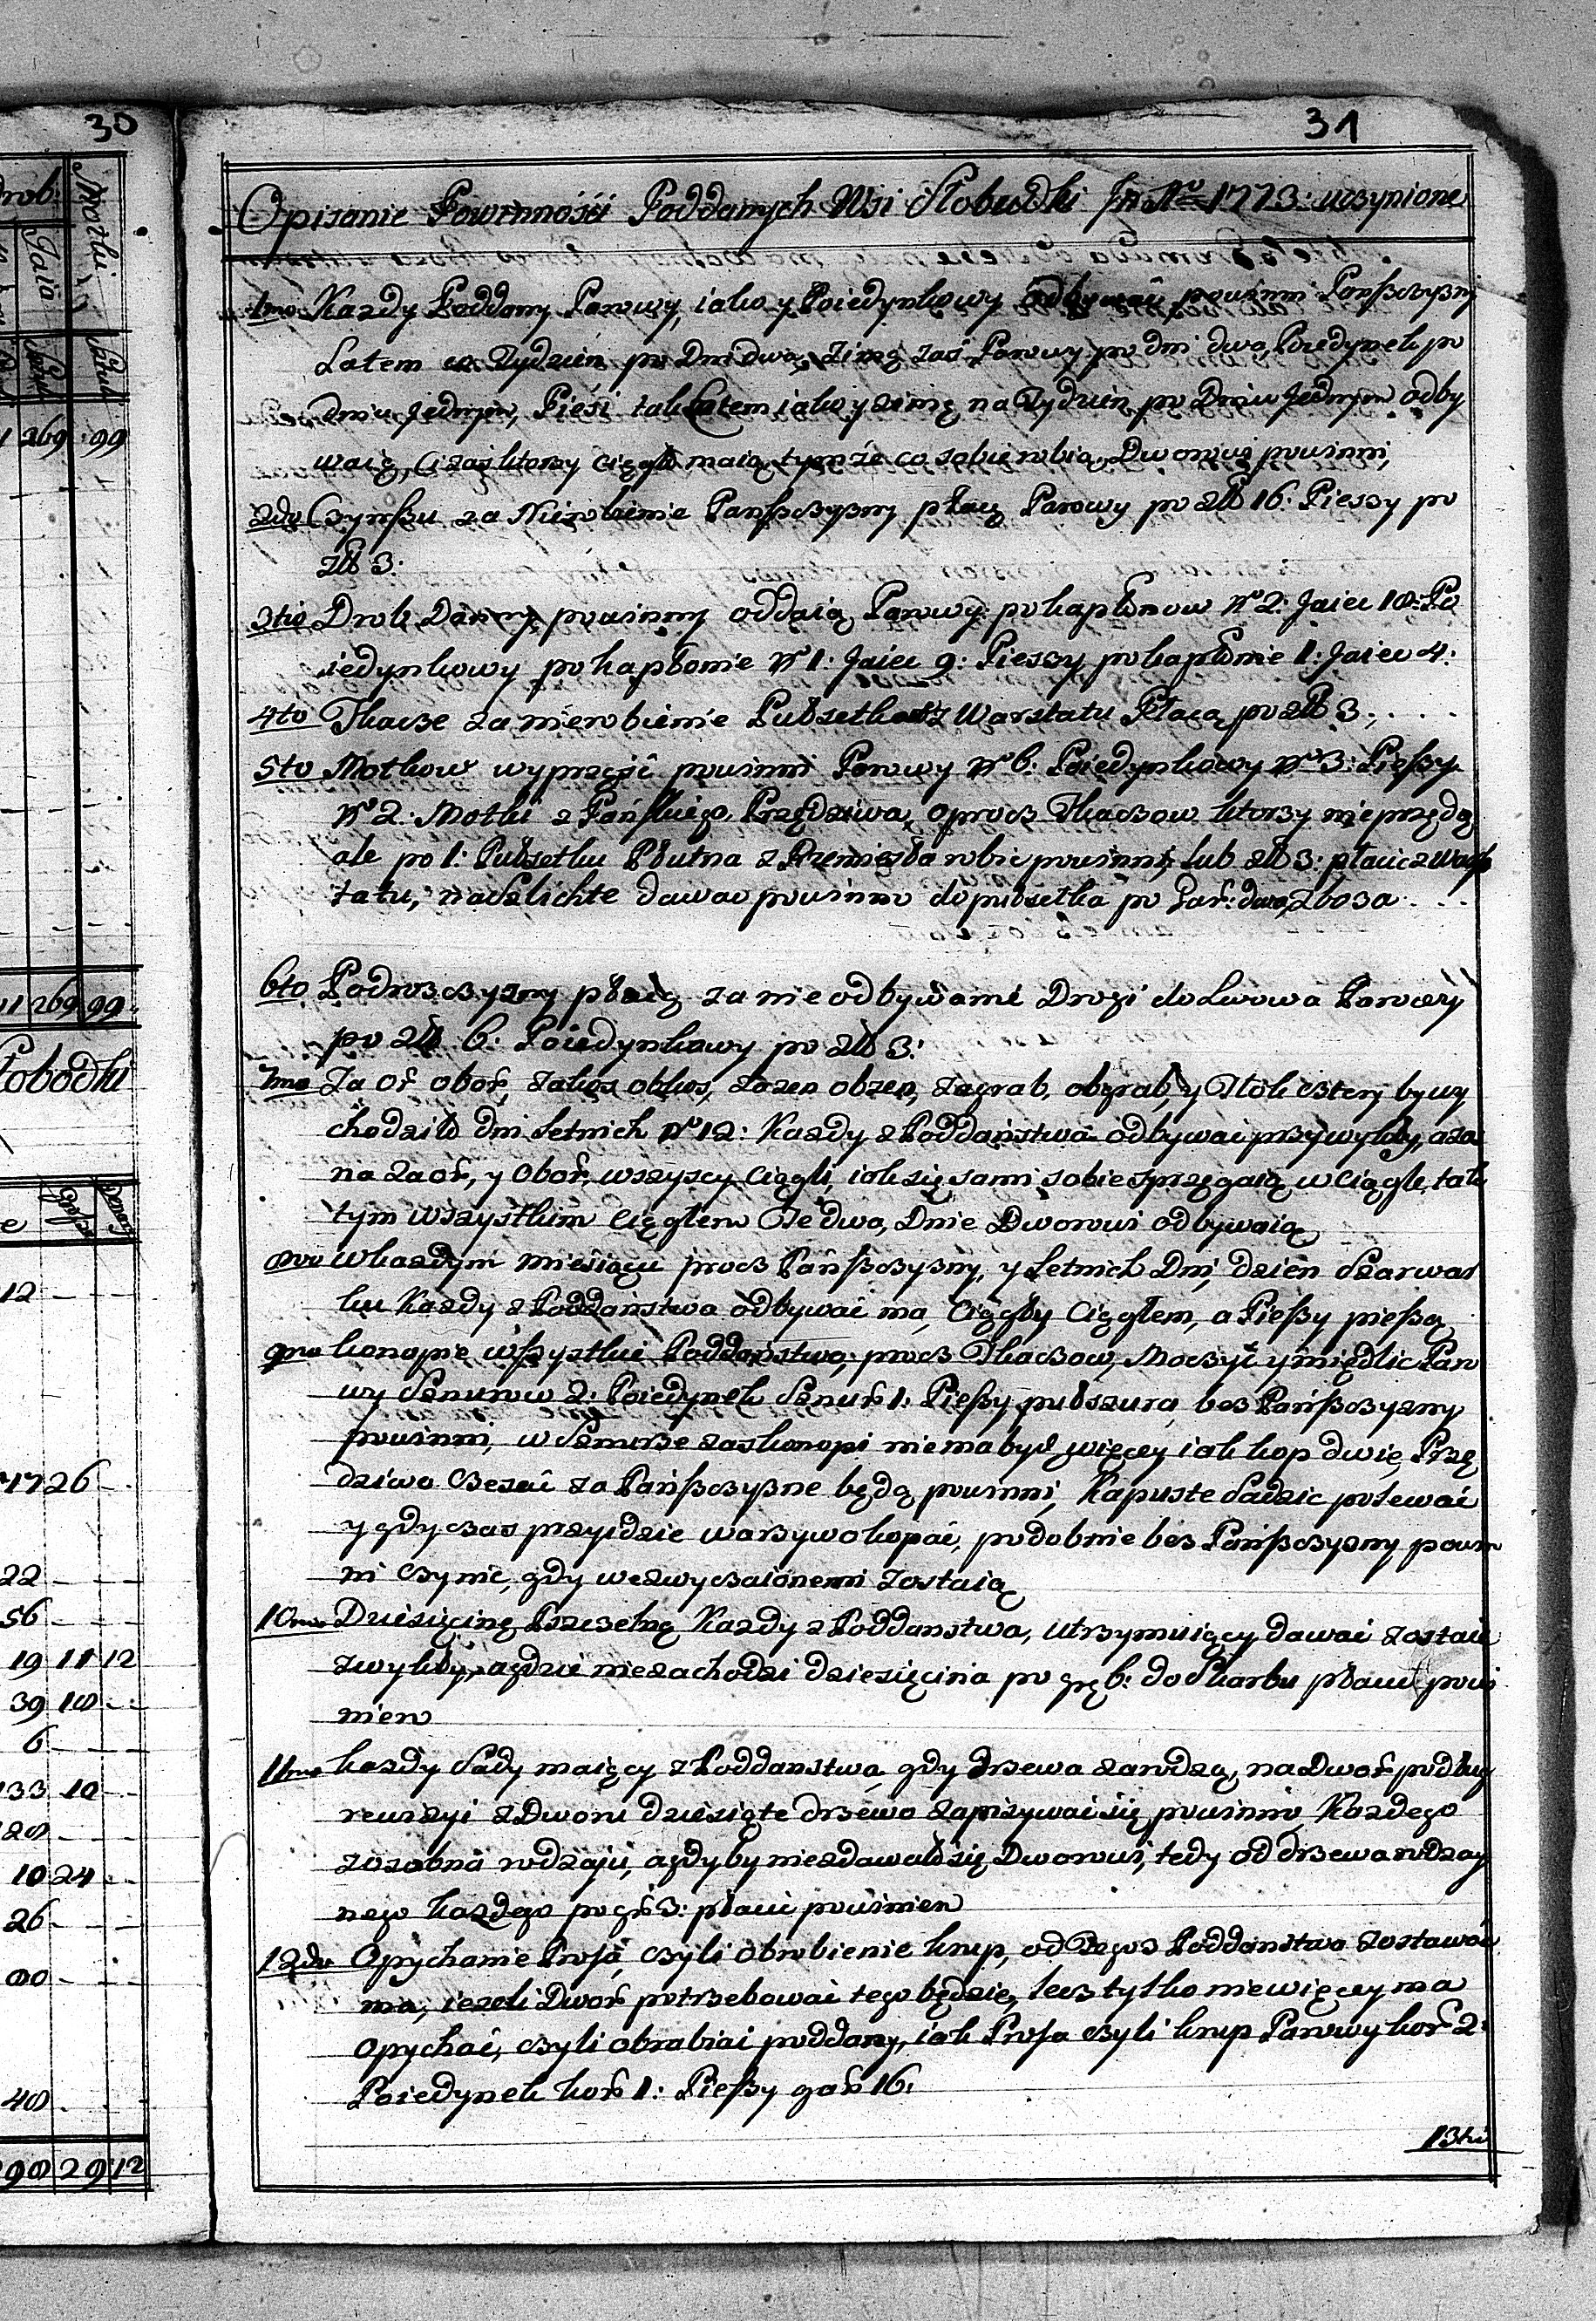 30
31
drob:
Motki
Jaia
Sztuk
1 269 99
11 269 99
łobodki
12
17 26
22
56
19 11 12
39 18
6
133 10
28
10 24
26
80
48
298 29 12
Opisanie Powinności Poddanych Wsi Słobudki in Aō 1773: uczynione
1mo Kazdy Poddany Parowy, iako y Poiedynkowy odbywać powinni Panszczyzny
Latem w Tydzien po Dni dwa, zimą zaś Parowy po dni dwa, Poiedynek po
Dniu Jednym, Piesi tak Latem iako y zimą na Tydzien po Dniu Jednym odby
waią, Ci zaś ktorzy ciągło maią, tymże co sobie robią, Dworowi powinni,
2do Czynszu za Nierobienie Panszczyzny płacą Parowy po zł 16: Pieszy po
zł 3:
3tio Drob Danny powinny oddaią Parowy po kapłonow No 2: Jaiec 18: Po
iedynkowy po kapłonie No 1: Jaiec 9: Pieszy po kapłonie 1: Jaiec 4:
4to Tkacze za nierobienie Pułsetkow z Warstatu Płacą po zł 3:
5to Motkow wyprząść powinni Parowy No 6: Poiedynkowy No 3: Pieszy
No 2. Motki z Pańskiego Przędziwa, oprocz Tkaczow ktorzy nie przędą
ale po 1: Pułsetku Płutna z Rzemiesła robic powinni, lub zł 3: płacic z Wars
tatu, na szlichte dawac powinno do pułsetka po Gar: dwa Zboza
6to Podroszczyzny płacą za nie odbywanie Drogi do Lwowa Parowy
po zł 6: Poiedynkowy po zł 3:
7mo Za or obor, zakos obkos, zazen obzen, zagrab, obgrab, y Tłok cztery by wy
chodziło dni Letnich No 12: Kazdy z Poddaństwa odbywai przywykły, a za
na Zaor, y Obor, wszyscy Ciągli, iak się sami sobie sprzęgaią w ciągle, tak
tym wszystkim Ciągłem Te dwa, Dnie Dworowi odbywaią
8vo w kazdym miesiącu procz Panszczyzny, y Letnich Dni, dzien Szarwar
ku Kazdy z Poddaństwa odbywać ma, Ciągły Ciągłem, a Pieszy pieszą
9no konopie wszystkie Poddaństwo, procz Tkaczow, Moczyć y międlic Paro
wy Sznurow 2: Poiedynek Sznur 1: Pieszy pułsznra bez Panszczyzny
powinni, w Sznurze zas konopi nie ma być więcey iak kop dwie, Przę
dziwo czesać za Panszczyzne będą powinni, Kapuste Sadzic polewać
y gdy czas przyidzie warzywo kopać, podobnie bez Panszczyzny powin
ni czynic, gdy we zwyczaionemi zostaią
10mo Dziesięcinę Pszczelną Kazdy z Poddanstwa, utrzymuiący dawai zostaie
zwykły, a gdzie niezachodzi dziesięcina po gr 6: do Skarbu płacic powi
nien
11mo kazdy Sady maiący z Poddanstwa gdy drzewa zarodzą, na Dwor podług
rewizyi z Dworu dziesiąte drzewo zapisywai się powinno Każdego
zosobna rodzaju, a gdyby niezdawało się Dworowi, tedy od drzewa rodzay
nego każdego po gr 3: płacic powinien
12do Opychanie Prosa, czyli obrobienie krup, od Tegoz Poddanstwa zostawać
ma, iezeli Dwor potrzebowai tego będzie, lecz tylko niewięcey ma
opychać, czyli obrabiai poddany, iak Prosa czyli krup Parowy kor 2:
Poiedynek kor 1: Pieszy gar 16:
13tio